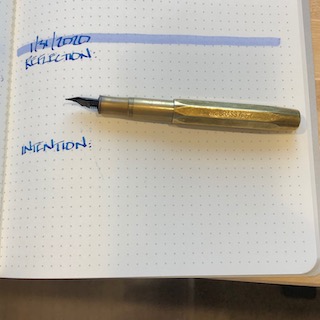 1/31/2020
REFLECTION:
INTENTION: